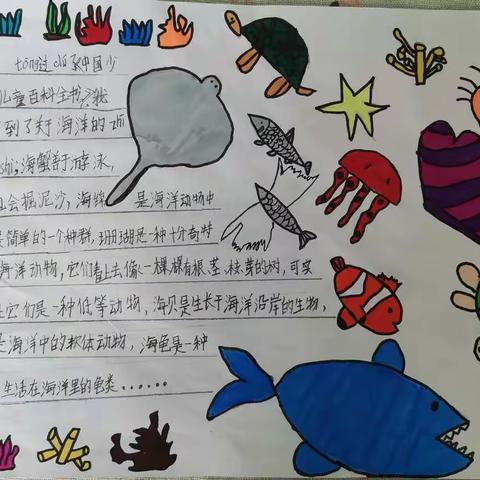 tōng过 dú 《中国少
儿童百科全书》，我
了到了关于海洋的 zhī
shi；海蟹善于游泳，
且会掘泥沙，海绵 是海洋动物中
最简单的一个种群，珊瑚是一种十分奇特
海洋动物，它们看上去像一棵棵有根、茎、枝、芽的树，可实
它们是一种低等动物，海贝是生长于海洋沿岸的生物，
是海洋中的软体动物，海龟是一种
生活在海洋里的龟类……